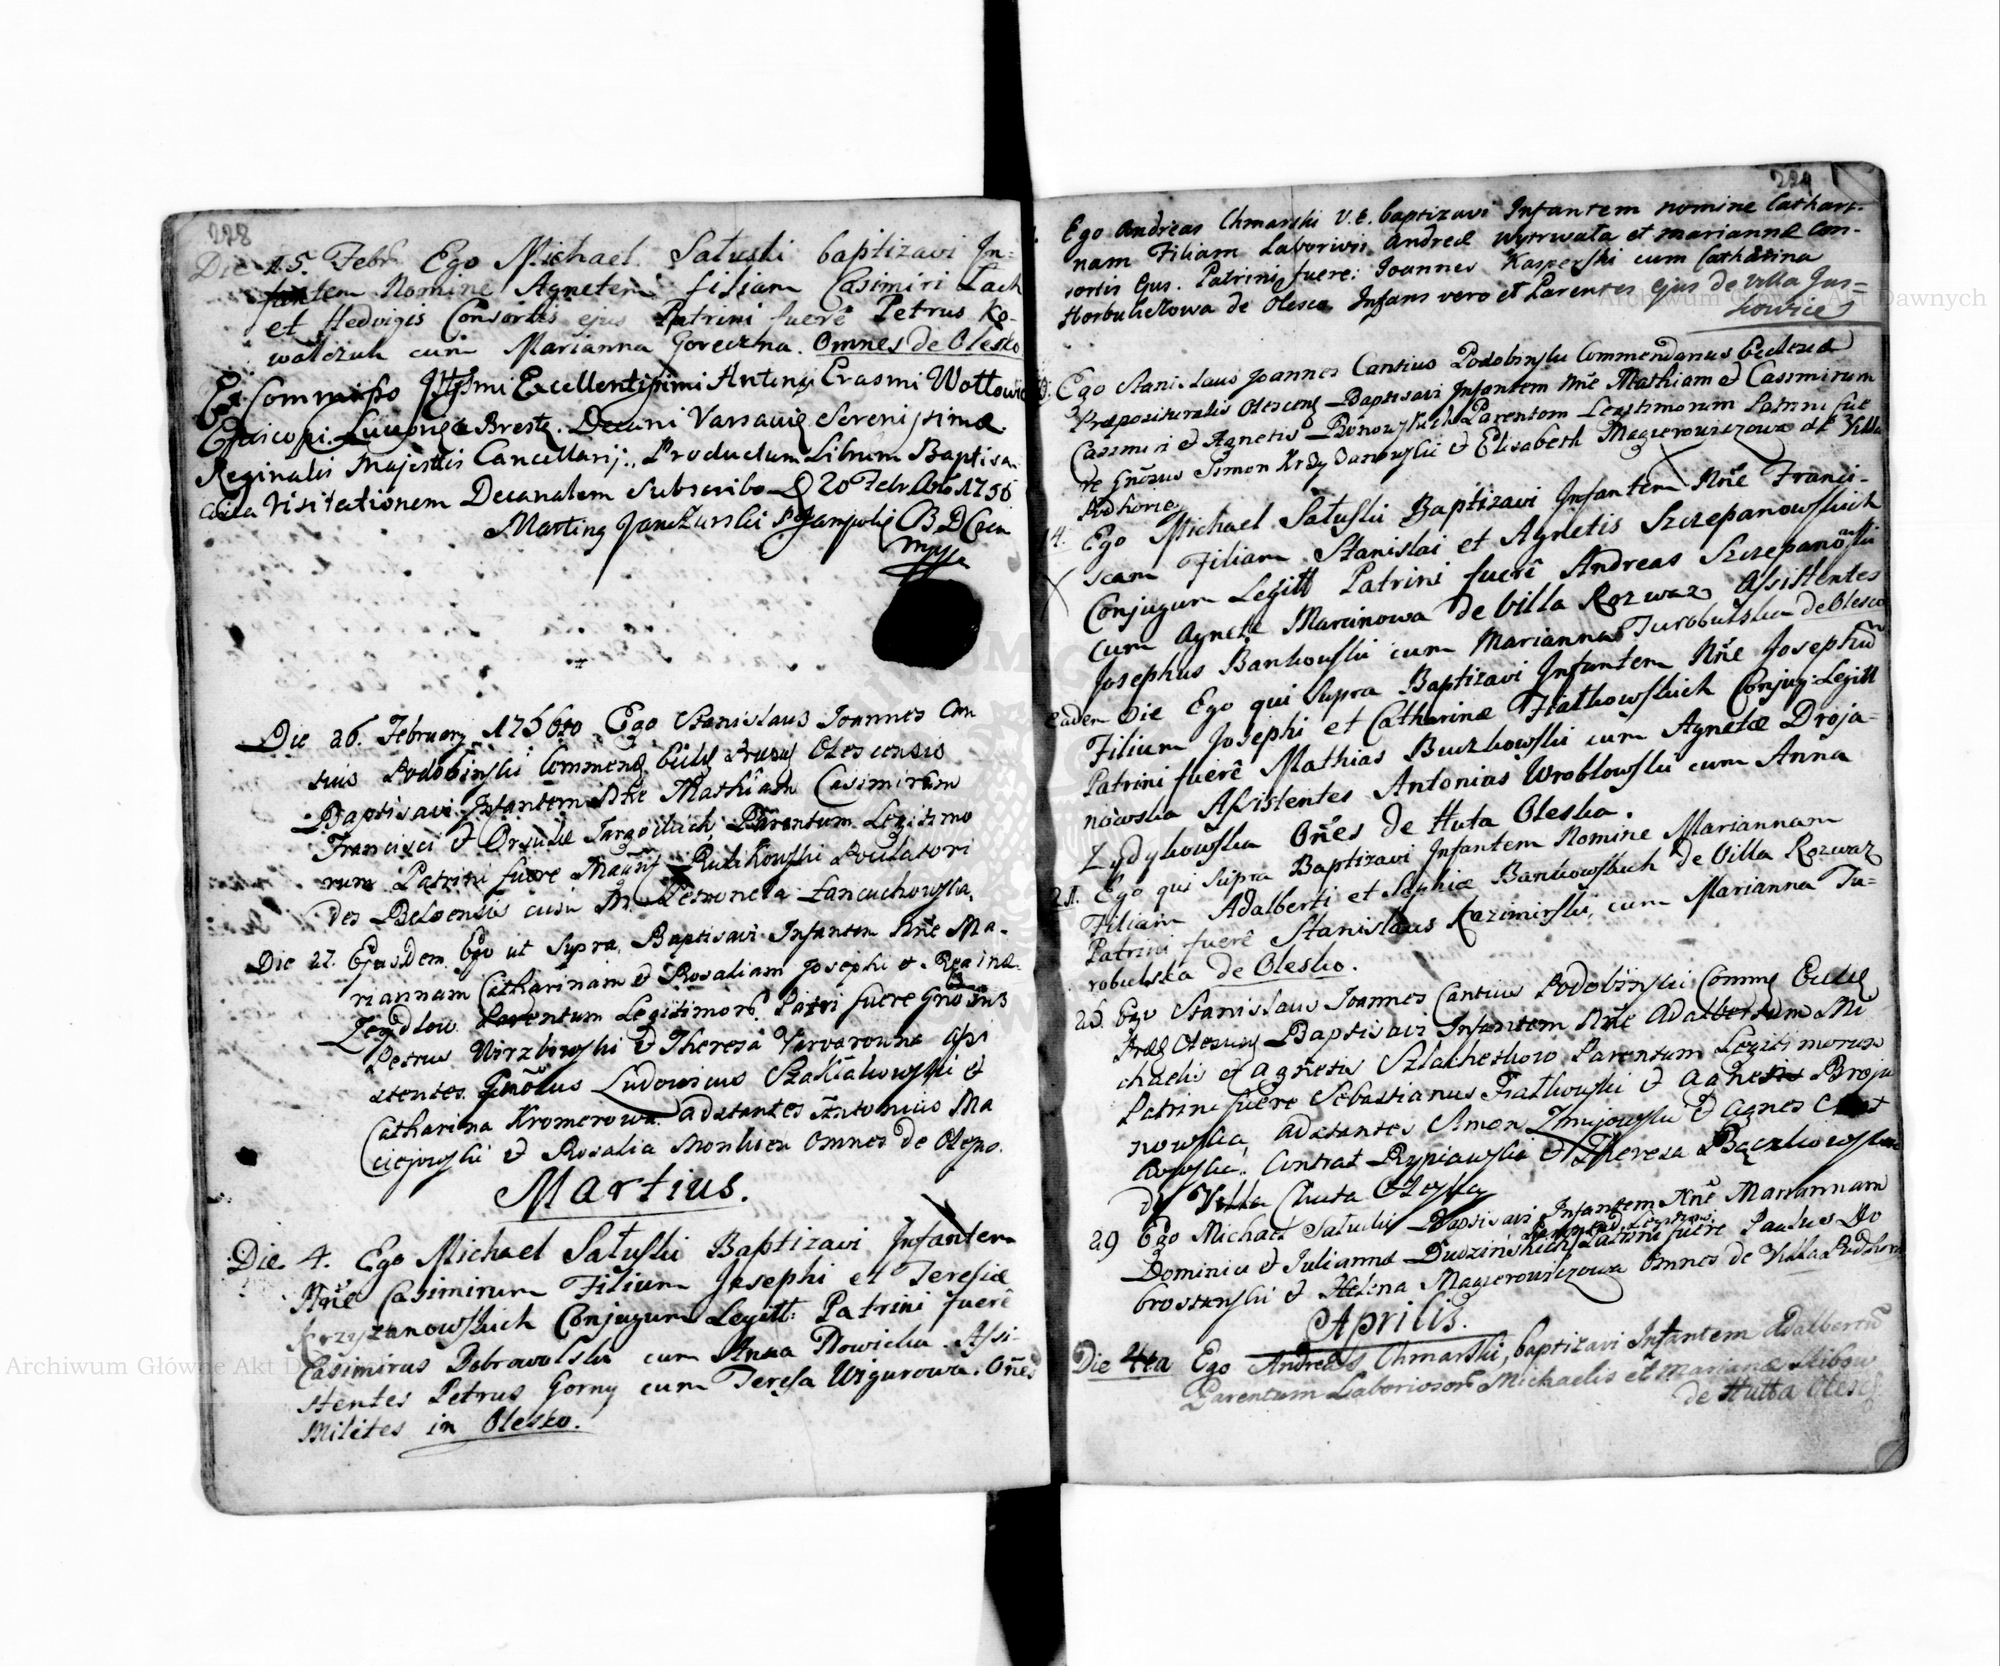 228
Die 15. Febr. Ego Michael Satuski baptizavi In=
fantem Nomine Agnetem filiam Casimiri Lach
et Hedvigis Consortis ejus Patrini fuerê Petrus Ko-
walczuk cum Marianna Goreczna. Omnes de Olesko
Ex Commisso Excellentissimi Antonij Erasmi Wołłowicz
Episcopi Luceor. & Brest. Decani Varsavię Serenissimæ
Reginalis Majestis Cancellarij. Productum Librum Baptisa.
Visitationem Decanalem Subscribo D 20 Febr. Ano 1756
Martinq Janczurski
mpp
Die 26. February 1756to Ego Stanislaus Joannes Can
tius Podobinski Commend. Olescensis
Baptisavi Infantem Nñe Mathiam Casimirum
Francisci & Orsulæ Parentum Legitimo
rum Patrini fuere Rulikowski
des Belzensis cum M. Petronela Łancuchowska.
Die 27. Ejusdem Ego ut Supra Baptisavi Infantem Nñe Ma-
riannam Catharinam & Rosaliam Josephi & Reginæ
Parentum Legitimor. Patri fuere Gnosus
Petrus Wirzbowski & Theresa Assi
stentes Gnosus Ludovicus et
Catharina Kromerowa adstantes Antonius Ma
ciejowski & Rosalia Omnes de Olesko.
Martius.
Die 4. Ego Michael Satuski Baptizavi Infantem
Nñe Casimirum Filium Josephi et Teresiæ
Krzyżanowskich Conjugum Legitt: Patrini fuerê
Casimirus Dobrowolski cum Anna Nowicka Assi-
stentes Petrus Gorny cum Teresa Wigurowa. Oñes
Milites in Olesko.
229
Ego Andreas Chmarski V.E. baptizavi Infantem nomine Cathari-
nam Filiam Laboriosi Andreæ Wytrwała et mariannæ Con-
sortis Ejus. Patrini fuere: Joannes Kasperski cum Catharina
Horbulickowa de Olesco Infans vero et Parentes ejus de villa Jus=
kowice
Ego Stanislaus Joannes Cantius Podobinski Commendarius Ecclesiæ
Præposituralis Olescens Baptisavi Infantem Nñe Mathiam & Casimirum
Casimiri & Agnetis Parentum Legitimorum Patrini fue
re Gnosus Simon Krzyżanowski & Elisabeth Magierowiczowa de Villa
Podhorce
14. Ego Michael Satuski Baptizavi Infantem Nñe Franci-
scam Filiam Stanislai et Agnetis Szczepanowskich
Conjugum Legitt Patrini fuerê Andreas Szczepanowski
cum Agnete Marcinowa de Villa Rozwaz Assistentes
Josephus Bankowski cum Marianna Turobulska de Olesco
Eadem Die Ego qui supra Baptizavi Infantem Nñe Josephũ
Filium Josephi et Catharinæ Fiałkowskich Conjug: Legitt
Patrini fuerê Mathias Buczkowski cum Agnetæ Droja=
nowska Assistentes Antonius Wroblowski cum Anna
Zydykowska Oñes de Huta Oleska.
21. Ego qui supra Baptizavi Infantem Nomine Mariannam
Filiam Adalberti et Sophiæ Bankowskich de Villa Rozwaz
Patrini fuerê Stanislaus Kazimirski, cum Marianna Tu=
robulska de Olesko.
25. Ego Stanislaus Joannes Cantius Podobinski Comm
Baptisavi Infantem Nñe Adalbertum Mi
chaelis et Agnetis Parentum Legitimorum
Patrini fuere Sebastianus Fiałkowski & Agnes Droja
nowska, adstantes Simon Zmijowski & Agnes
Rypiawski & Theresa Bączkowska
de Villa Chuta Oleska
29 Ego Michael Satuski Baptisavi Infantem Nñe Mariannam
Parentum Legitim:
Dominici & Julianna Dudzinskich Patrini fuere Paulus Do
browski & Helena Magierowiczowa Omnes de Villa Podhorc
Aprilis.
Die 4ta Ego Andreas Chmarski, baptizavi Infantem Adalbertũ
Parentum Laboriosor. Michaelis et Marianæ
de Hutta Olesc
Archiwum Główne Akt Dawnych
Archiwum Główne Akt Dawnych